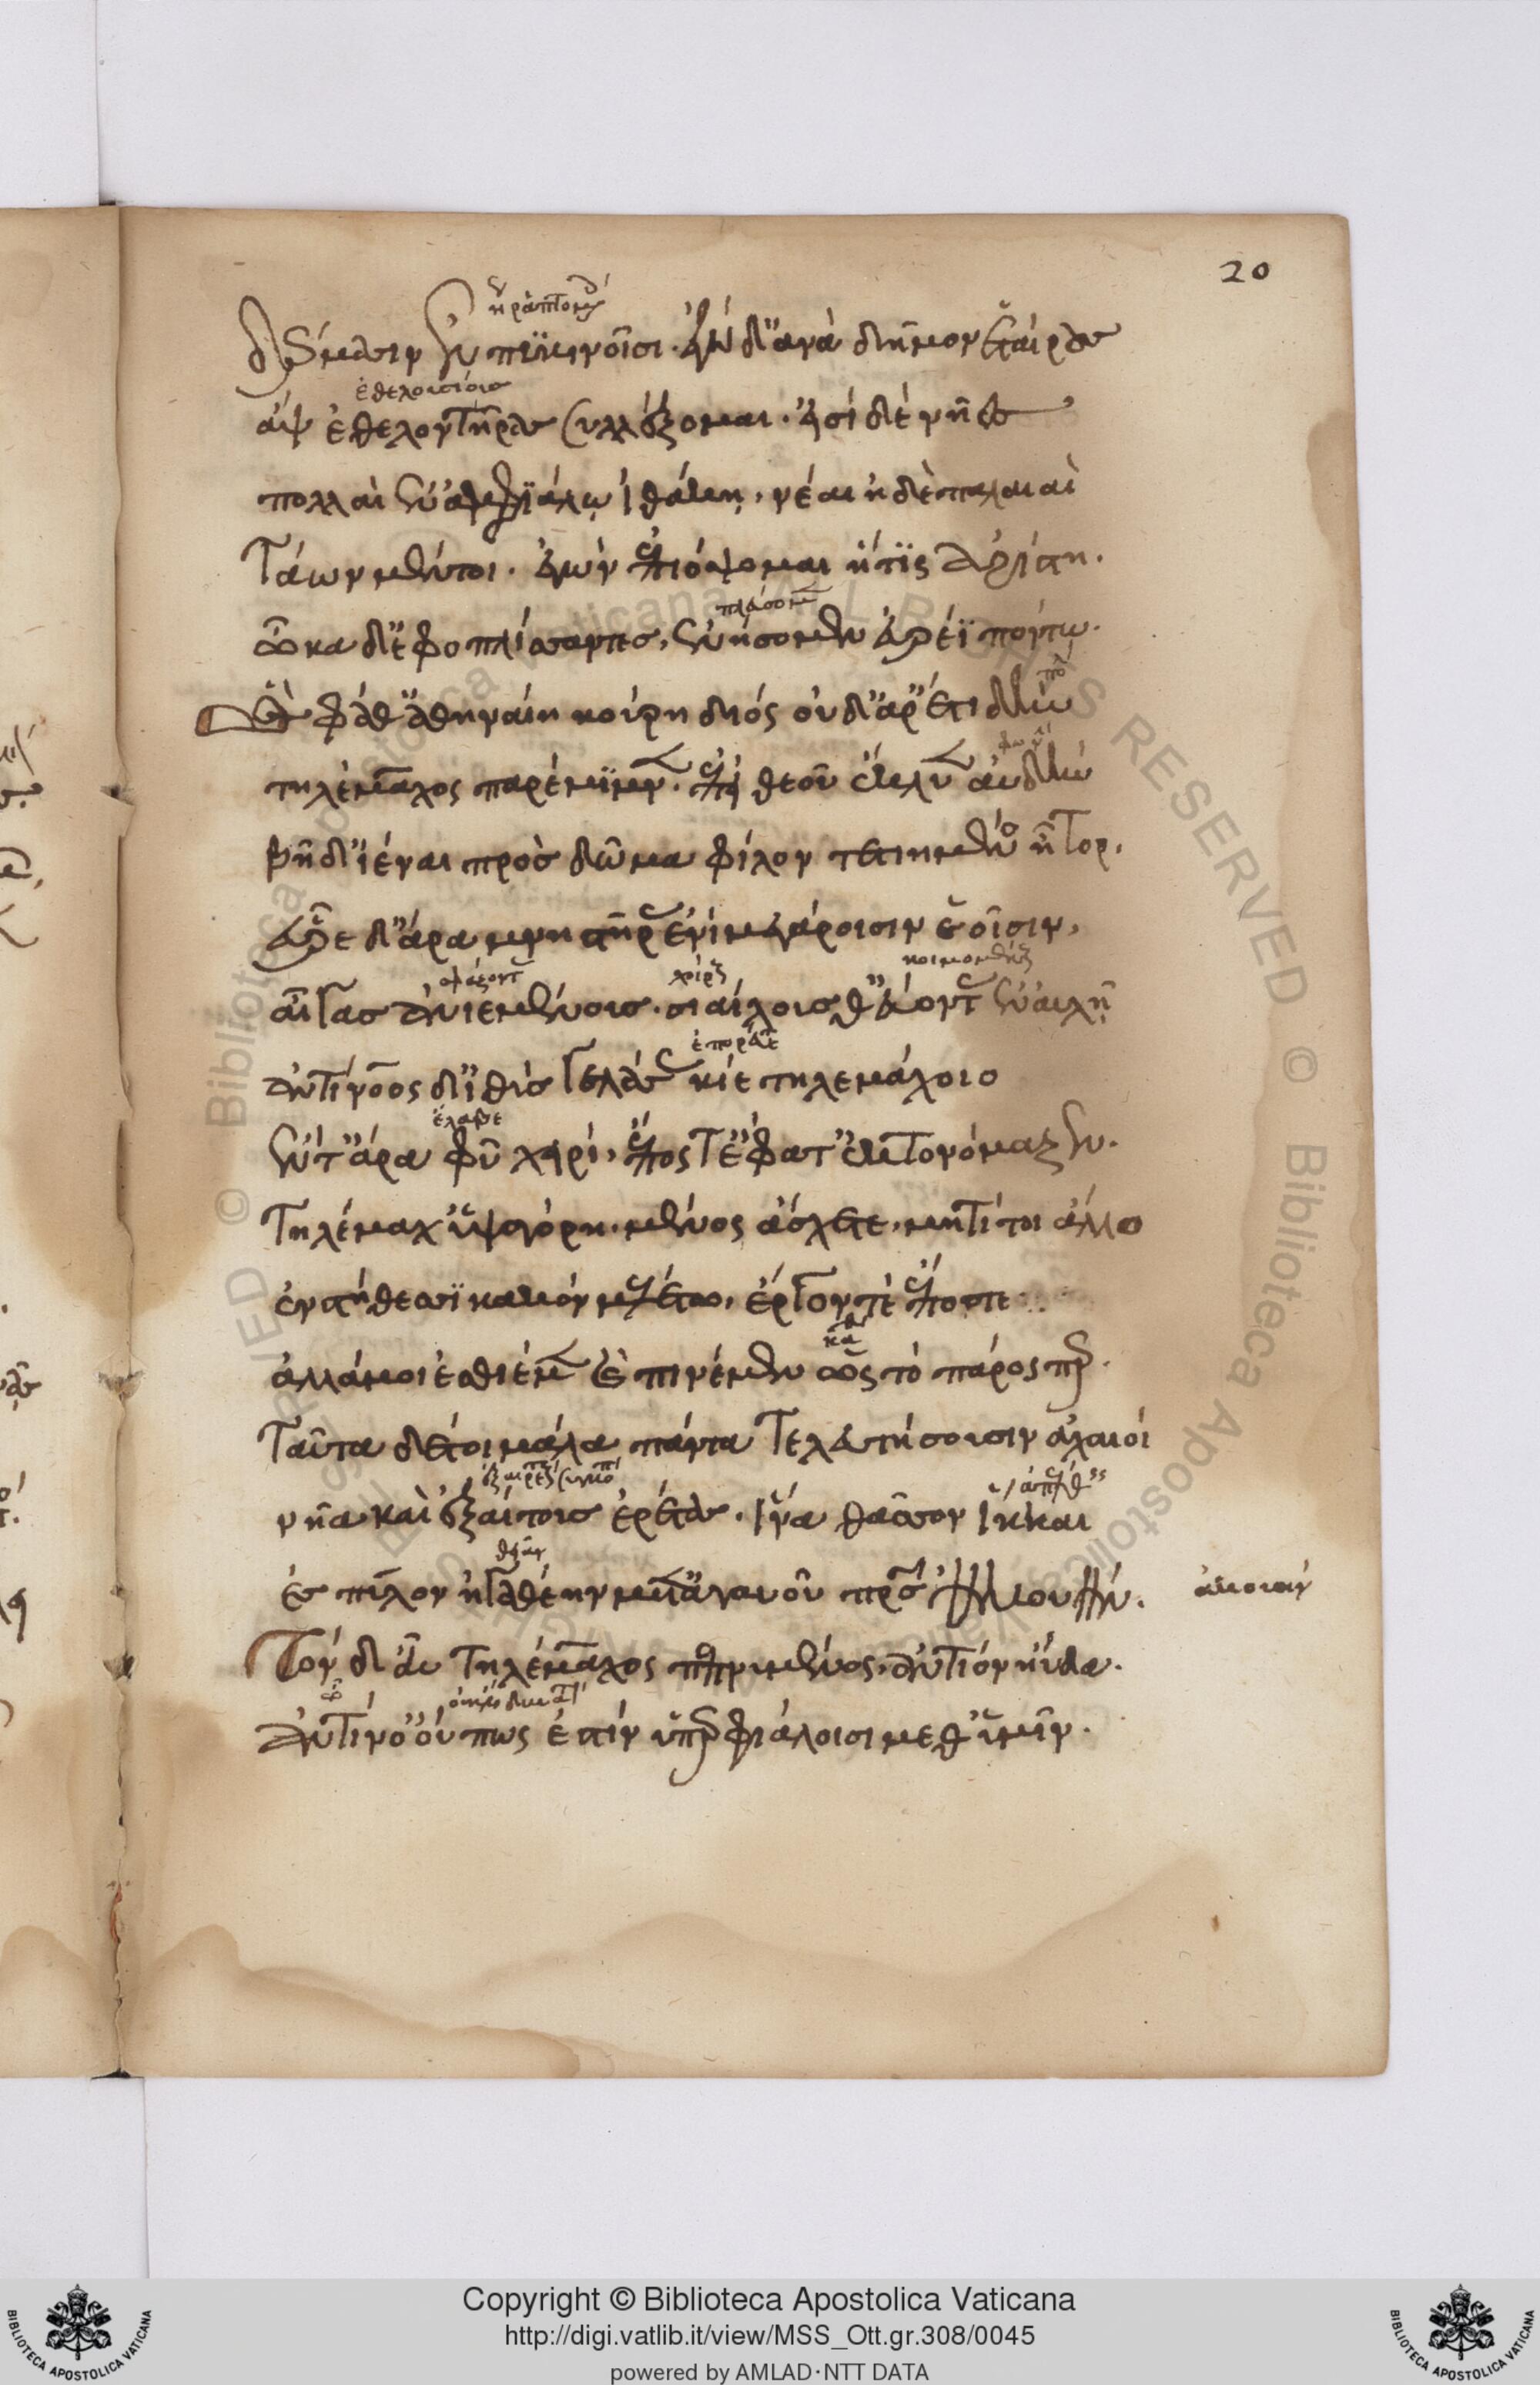 20
δέρμασιν ἐν πυκινοῖσι. ἐγὼ δ' ἀνὰ δῆμον ἑταίρους
ἐθελουσίους
αἶψ' ἐθελοντῆρας συλλέξομαι. εἰσὶ δὲ νῆες
πολλαὶ ἐν ἀμφιάλῳ ἰθάκῃ, νέαι ἠδὲ παλαιαὶ
τάων μέν τοι. ἐγὼν ἐπιόψομαι ἥτις ἀρίστη.
ὦκα δ' ἐφοπλίσσαντες, ἐνήσομεν εὐρέϊ πόντῳ.
ὣς φάθ' ἀθηναίη κούρη διός οὐδ' ἄρ' ἔτι δὴν
τηλέμαχος παρέμιμνεν. ἐπεὶ θεοῦ ἔκλυεν αὐδήν
βῆ δ' ἰέναι πρὸς δῶμα φίλον τετιημένος ἦτορ.
εὗρε δ' ἄρα μνηστῆρας ἐνὶ μεγάροισιν ἑοῖσιν,
αἶγας ἀνιεμένους. σιάλους θ' εὕοντας ἐν αὐλῇ
ἀντίνοος δ' ἰθὺς γελάσας κίε τηλεμάχοιο
ἔλαβε
ἔν τ' ἄρα οἱ φῦ χειρί, ἔπος τ' ἔφατ' ἔκ τ' ὀνόμαζεν.
τηλέμαχ' ὑψαγόρη. μένος ἄσχετε, μή τί τοι ἄλλο
ἐν στήθεσσι κακὸν μελέτω, ἔργον τὲ ἔπος τε
ἀλλά μοι ἐσθιέμεν καὶ πινέμεν ὡς τὸ πάρος περ.
ταῦτα δέ τοι μάλα πάντα τελευτήσουσιν ἀχαιοί
νῆα καὶ ἐξαίτους ἐρέτας. ἵνα θᾶσσον ἵκηαι
θείαν
ἐς πύλον ἠγαθέην μετ' ἀγαυοῦ πατρὸς ἀκουήν.
ἀκοιαν
τὸν δ' αὖ τηλέμαχος πεπνυμένος, ἀντίον ηὔδα.
ἀντίνο' οὔπως ἐστίν ὑπερφιάλοισι μεθ' ὑμῖν.
Copyright © Biblioteca Apostolica Vaticana
http://digi.vatlib.it/view/MSS_Ott.gr.308/0045
powered by AMLAD·NTT DATA